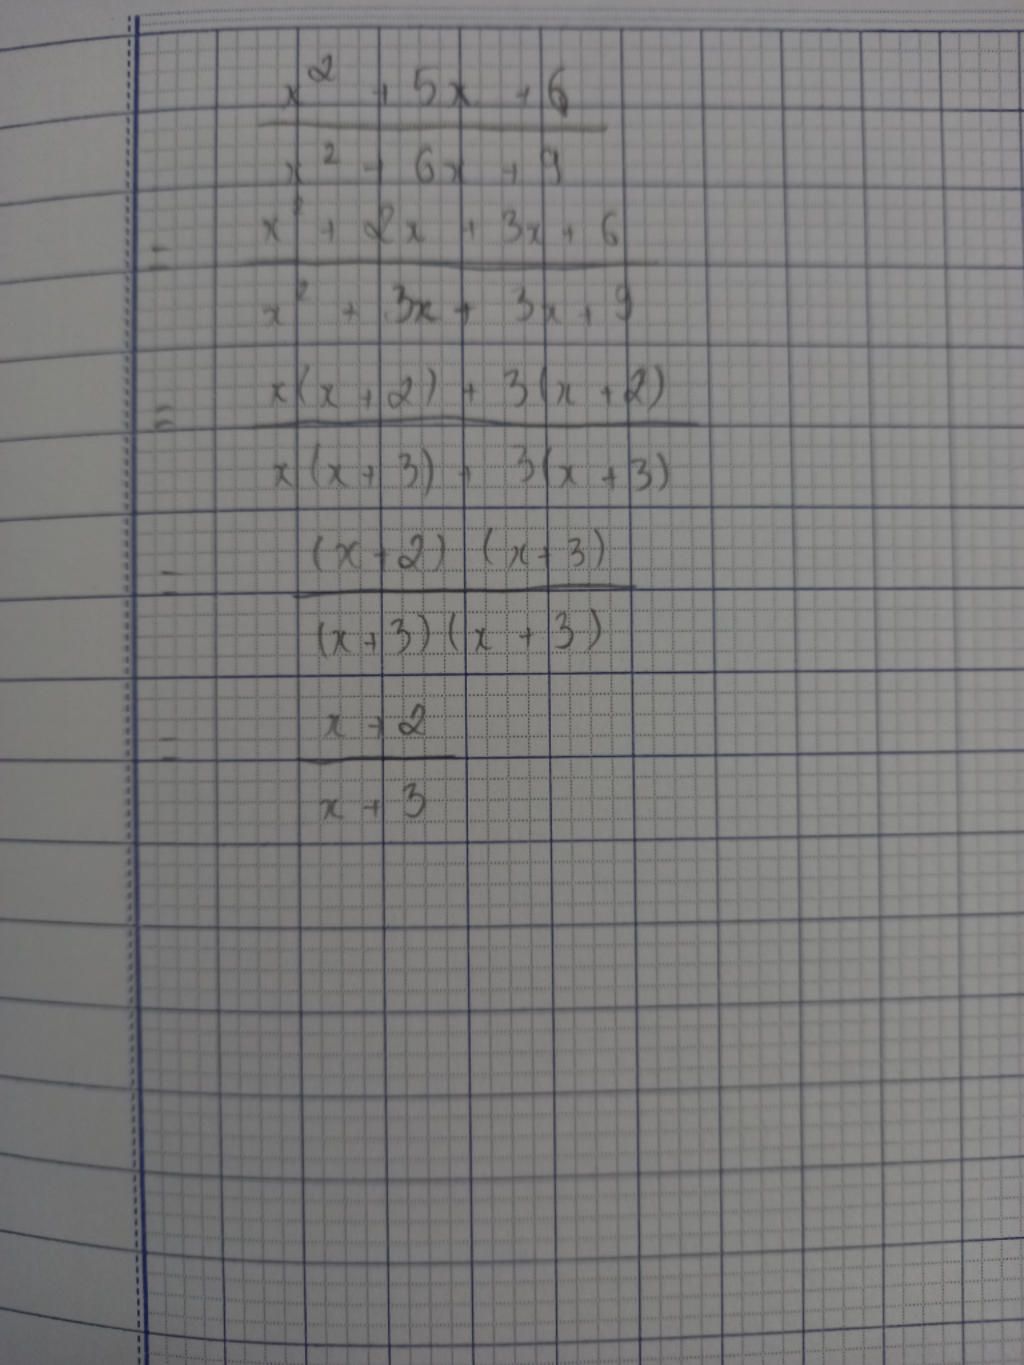 x² + 5x + 6
x² + 6x + 9
= x² + 2x + 3x + 6
x² + 3x + 3x + 9
= x(x + 2) + 3(x + 2)
x(x + 3) + 3(x + 3)
= (x + 2) (x + 3)
(x + 3)(x + 3)
= x + 2
x + 3